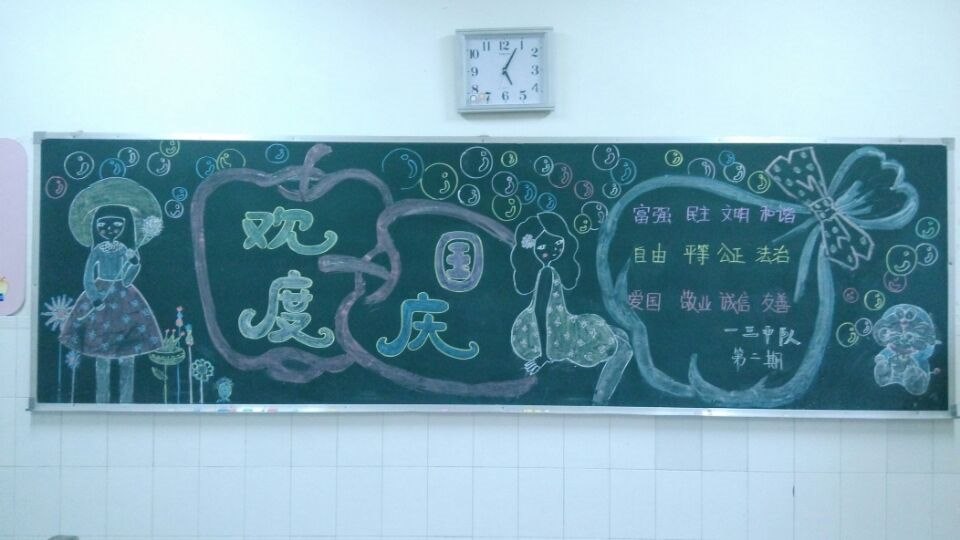 欢度
国庆
富强 民主 文明 和谐
自由 平等 公正 法治
爱国 敬业 诚信 友善
一三中队
第二期
12
1
2
3
4
5
6
7
9
10
11